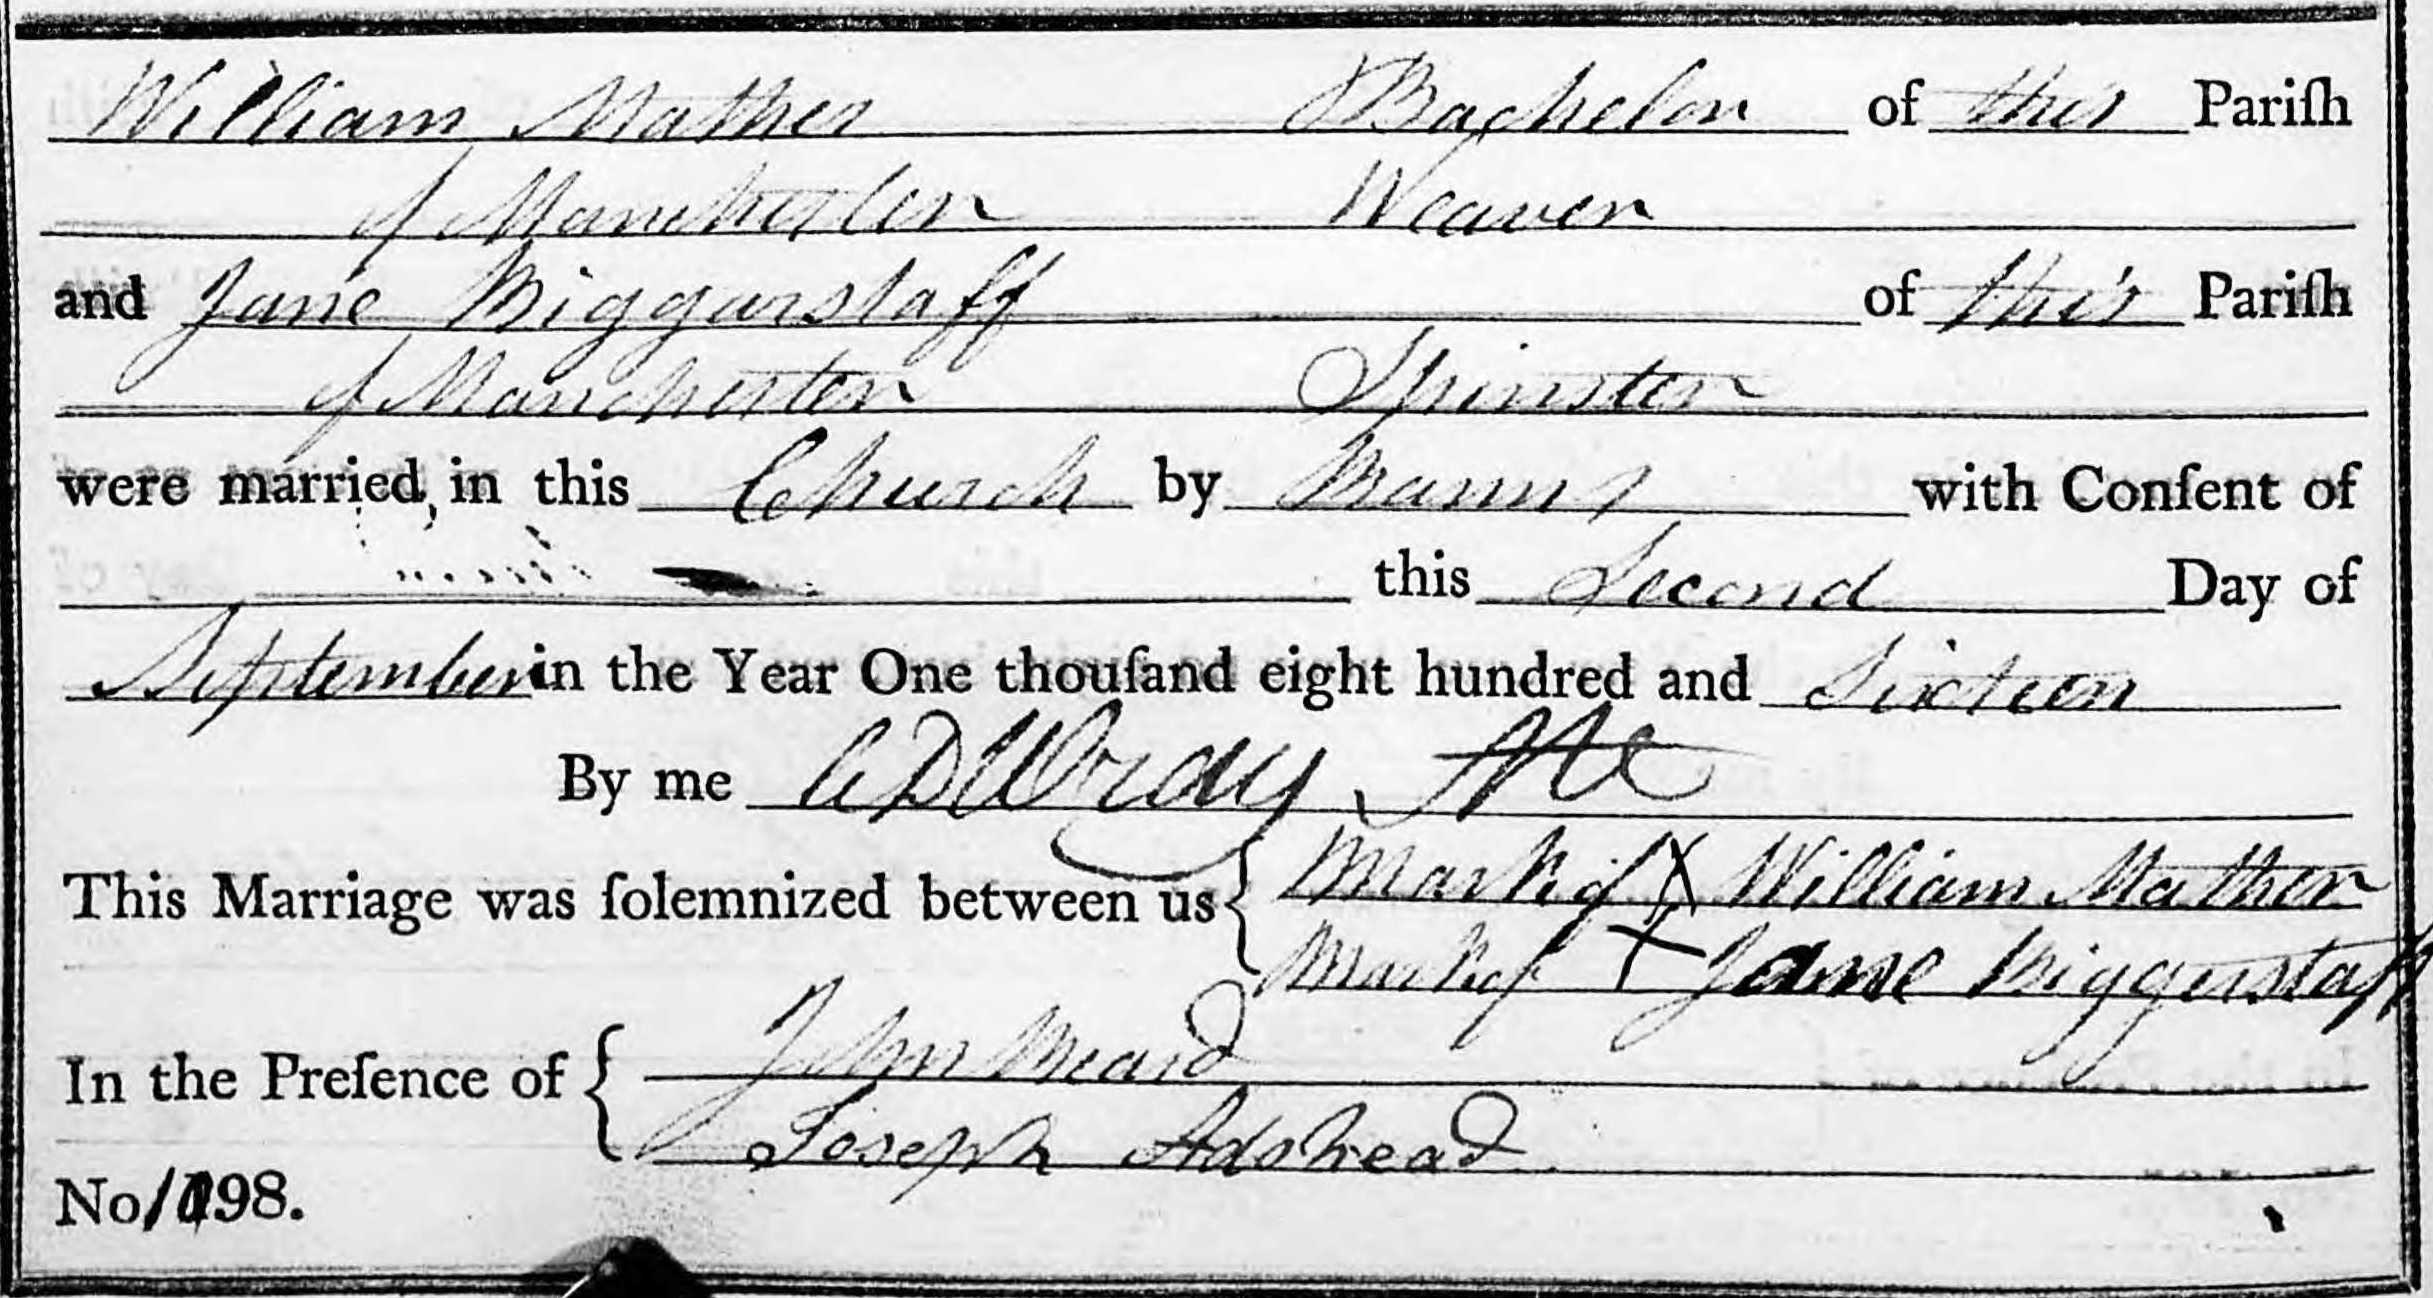 William Mather Bachelor of this Pariſh
of Manchester Weaver
and Jane Biggarstaff of this Pariſh
of Manchester Spinster
were married in this Church by Banns with Conſent of
this Second Day of
September in the Year One thouſand eight hundred and Sixteen
By me C D Wray
This Marriage was ſolemnized between us { Mark of X William Mather
Mark of X Jane Biggerstaff
In the Preſence of { John Beard
Joseph Adshead
No 98.